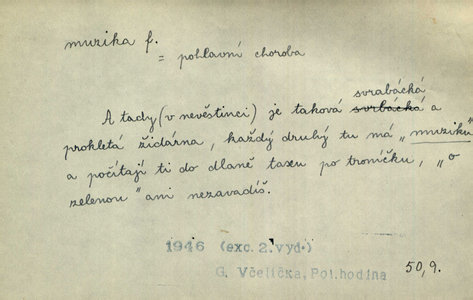 muzika f.
= pohlavní choroba
svrabácká
A tady (v nevěstinci) je taková svrbácká a
prokletá židárna, každý druhý tu má „muziku"
a počítají ti do dlaně taxu po troníčku, „o
zelenou" ani nezavadíš.
1946 (exc. 2. vyd.)
G. Včelička, Pol.hodina
50,9.